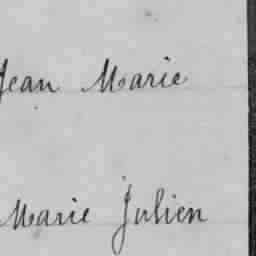 Jean Marie
Marie Julien